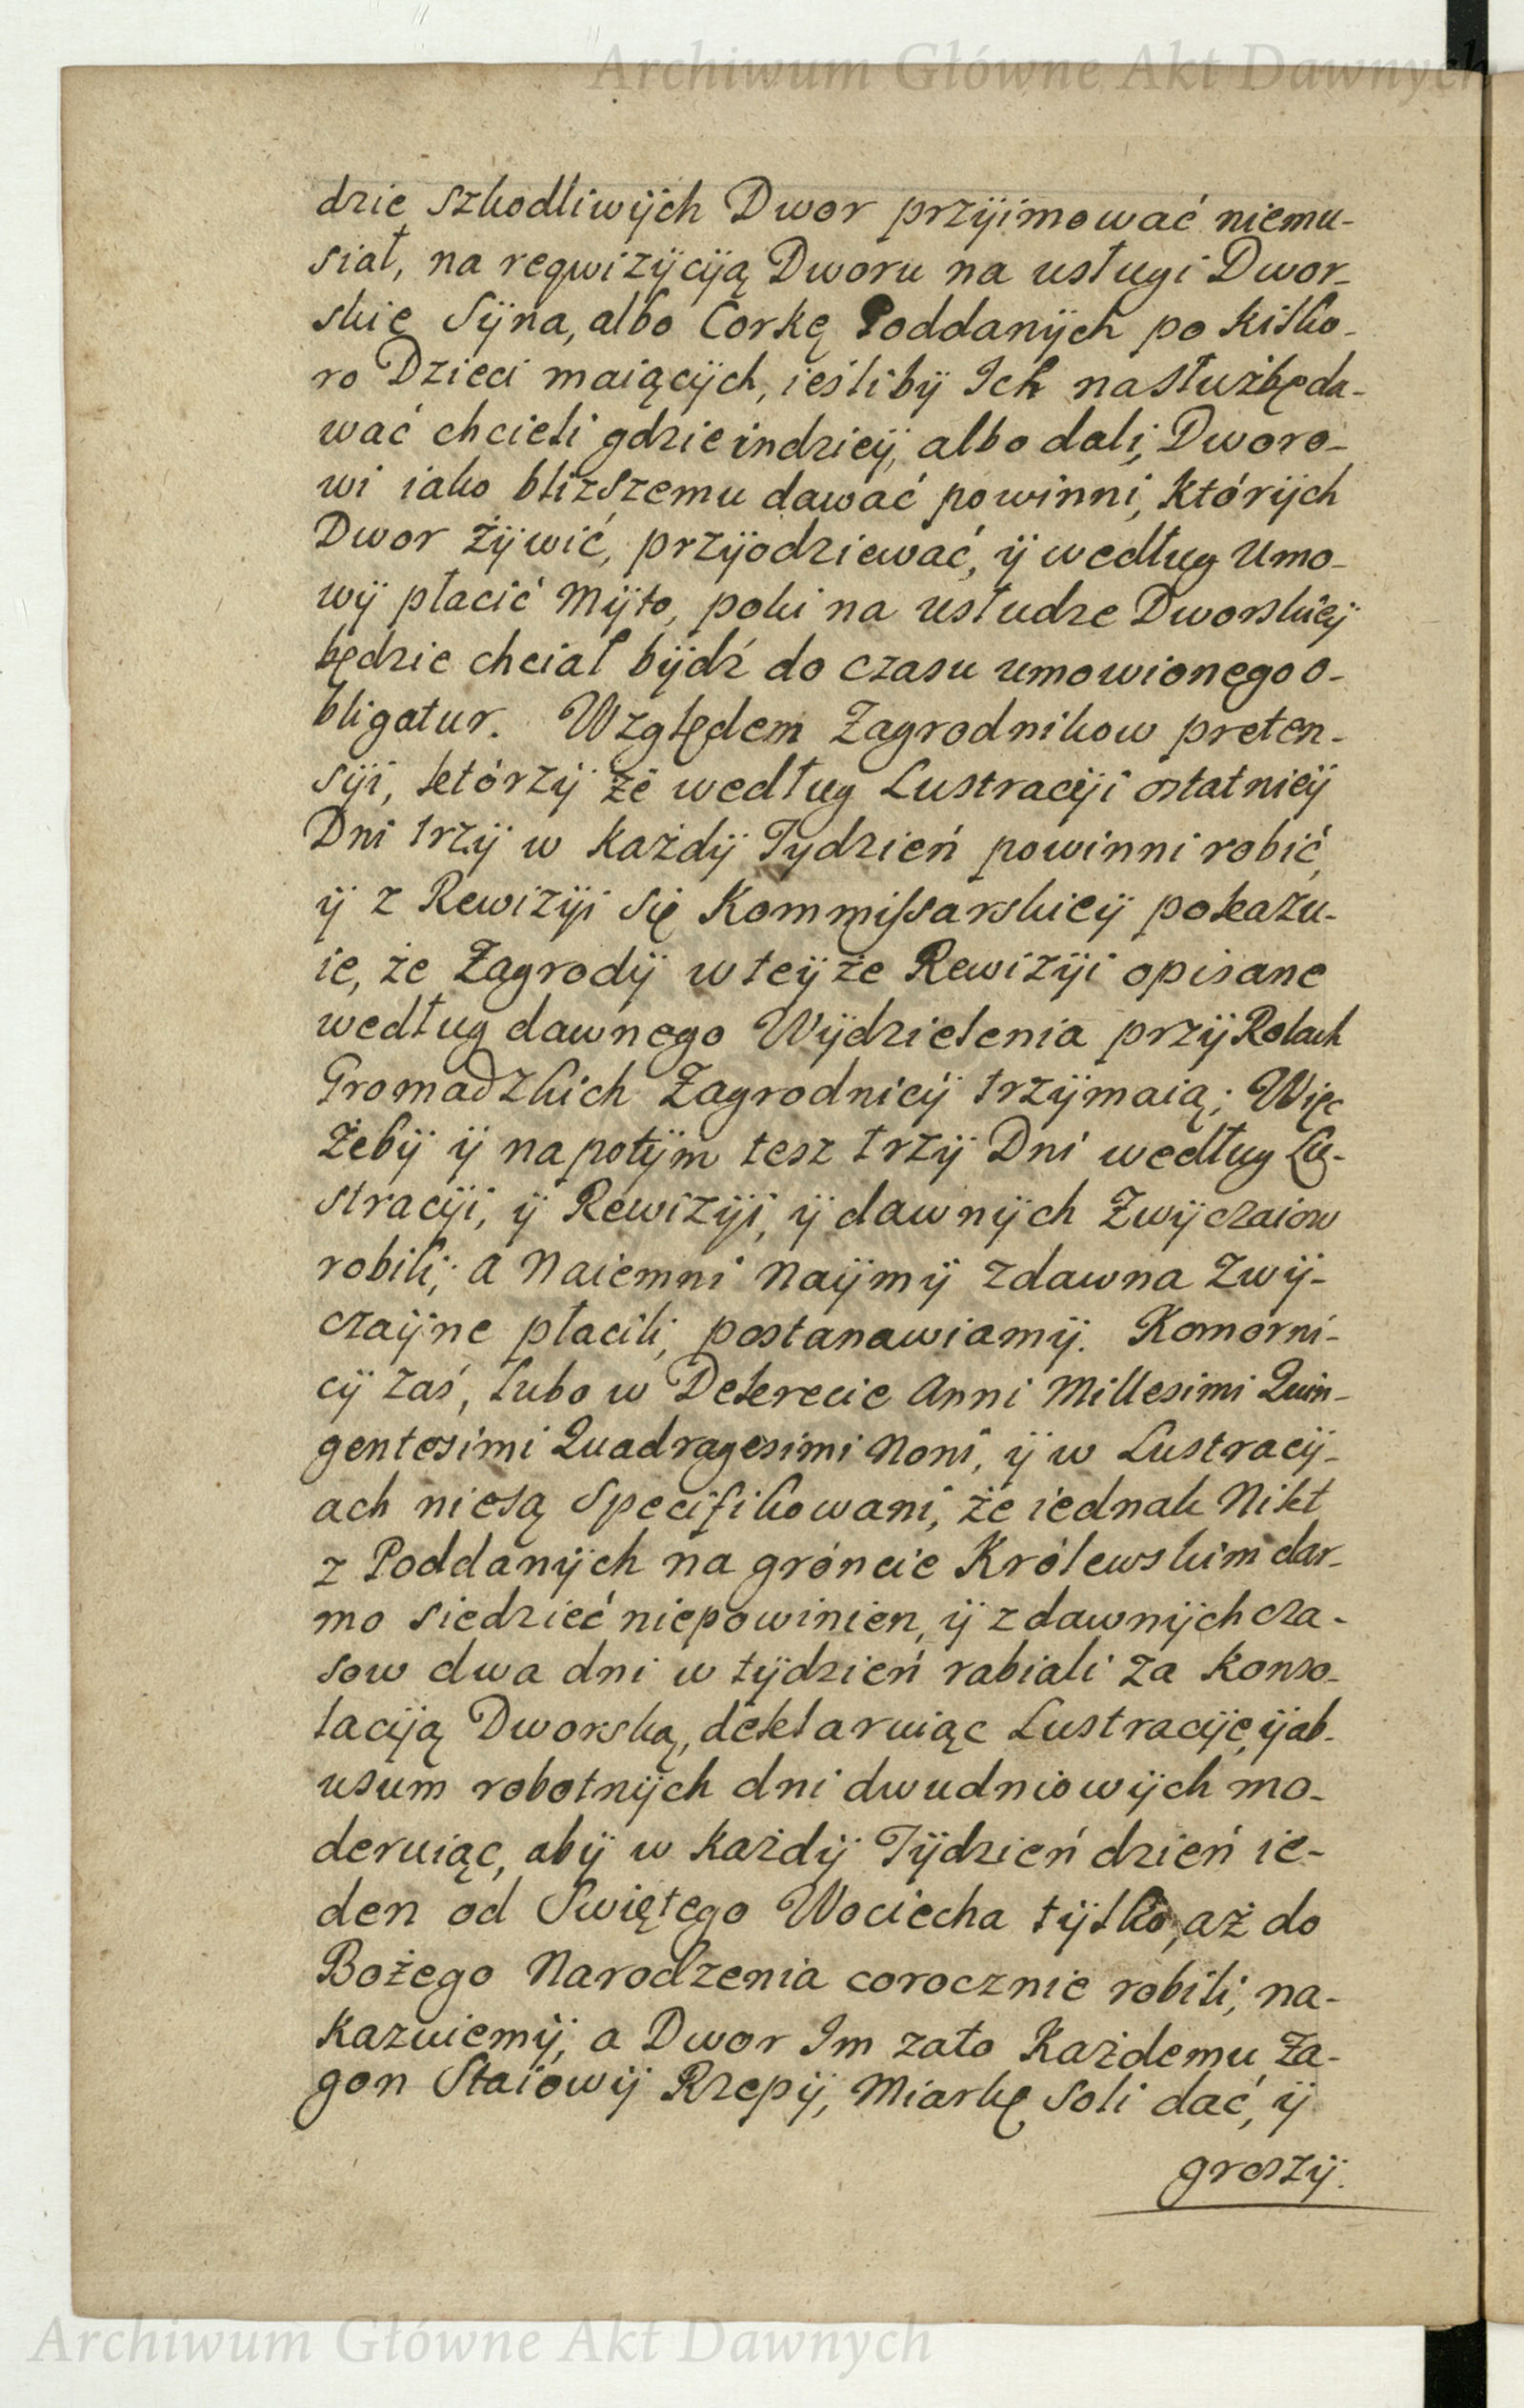 Archiwum Główne Akt Dawnych
dzie szkodliwÿch Dwor przÿimować niemu-
siał, na reqwizÿcÿią Dworu na usługi Dwor-
skie Sÿna, albo Corkę Poddanÿch po kilko-
ro Dzieci maiącÿch, ieślibÿ Ich nasłużbęda-
wać chcieli gdzieindzieÿ, albo dali, Dworo-
wi iako bliższemu dawać powinni, którÿch
Dwor żÿwić, przÿodziewać, ÿ według Umo-
wÿ płacić Mÿto, poki na usłudze Dworskieÿ
będzie chciał bÿdź do czasu umowionego o-
bligatur. Względem Zagrodnikow preten-
sÿi, którzÿ że według Lustracÿi ostatnieÿ
Dni trzÿ w każdÿ Tydzień powinni robić,
ÿ z Rewizÿi się Kommissarskieÿ pokazu-
ie, że Zagrodÿ w teÿże Rewizÿi opisane
według dawnego Wÿdzielenia przÿ Rolach
Gromadzkich Zagrodnicÿ trzÿmaią; Więc
żebÿ ÿ napotÿm tesz trzÿ Dni według Lu-
stracÿi, ÿ Rewizÿi, ÿ dawnÿch Zwÿczaiow
robili; a Naiemni Naÿmÿ zdawna Zwÿ-
czaÿne płacili, postanawiamÿ. Komorni-
cÿ zaś, lubo w Dekrecie Anni Millesimi Quin-
gentesimi Quadragesimi Noni, ÿ w Lustracÿ-
ach niesą specifikowani, że iednak Nikt
z Poddanÿch na gróncie Królewskim dar-
mo siedzieć niepowinien, ÿ z dawnÿch cza-
sow dwa dni w tÿdzień rabiali za konso-
lacÿią Dworską, deklaruiąc Lustracÿie, ÿ ab-
usum robotnÿch dni dwudniowÿch mo-
deruiąc, abÿ w każdÿ Tÿdzień dzień ie-
den od Swiętego Wociecha tÿlko, aż do
Bożego Narodzenia corocznie robili, na-
kazuiemÿ, a Dwor Im zato Każdemu Za-
gon Staiowÿ Rzepÿ, Miarkę Soli dać, ÿ
groszÿ.
Archiwum Główne Akt Dawnych